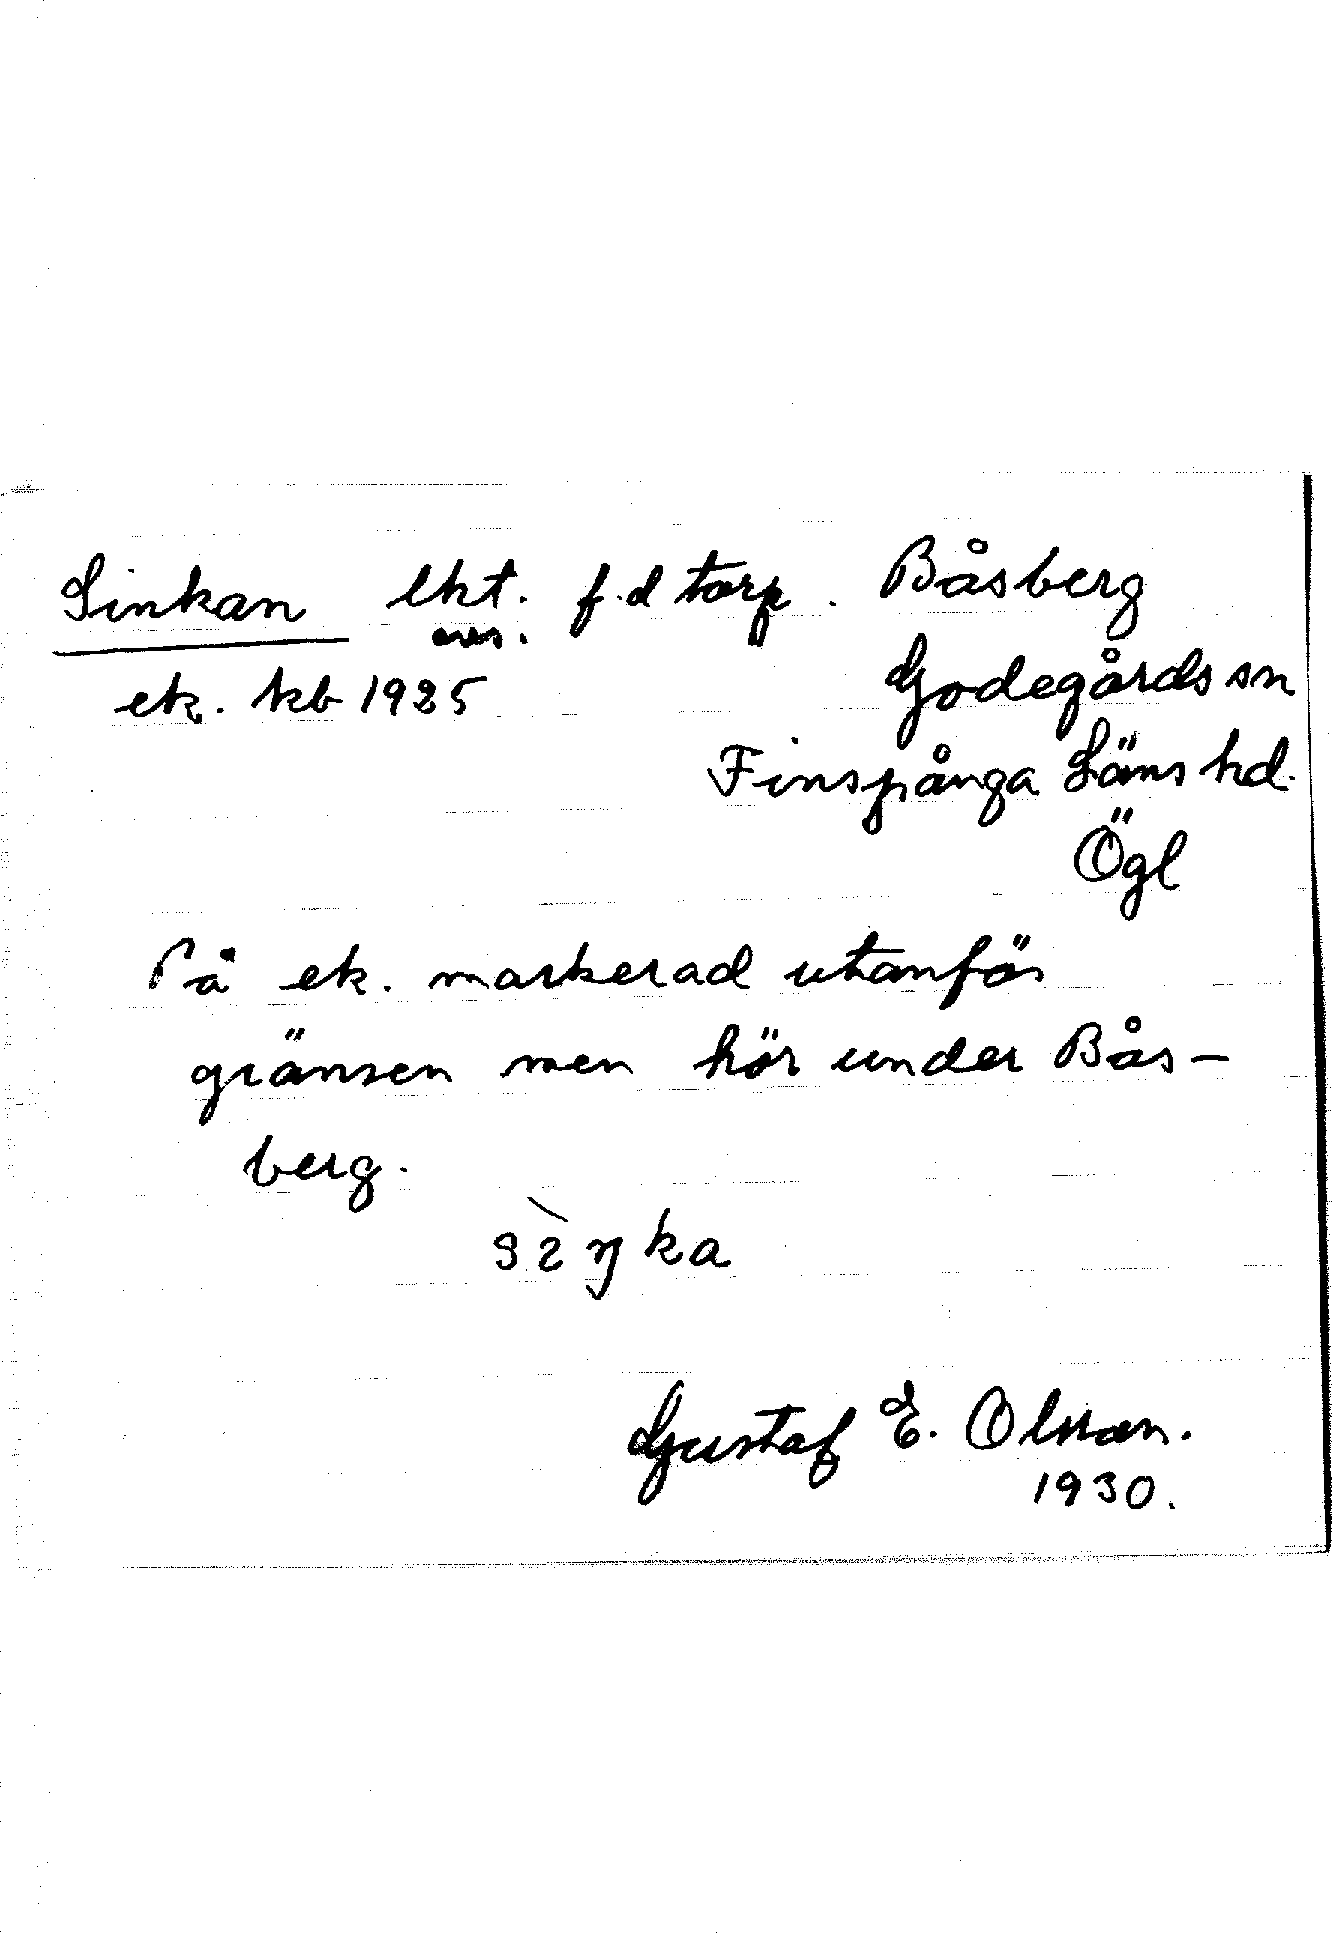 Sinkan lht. f.d torp. Båsberg
avs.
ek. kb 1925 Godegårds sn
Finspånga Läns hd.
Ögl
På ek. markerad utanför
gränsen men hör under Bås-
berg.
Gustaf E. Olsson.
1930.